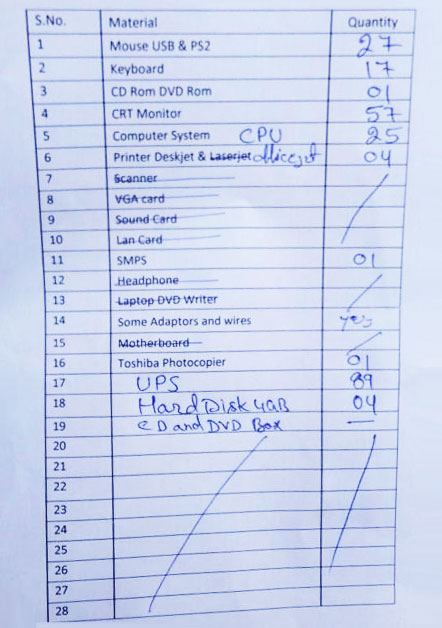 S.No. Material Quantity
1 Mouse USB & PS2 27
2 Keyboard 17
3 CD Rom DVD Rom 01
4 CRT Monitor 57
5 Computer System CPU 25
6 Printer Deskjet & Laserjet officejet 04
7 Scanner
8 VGA card
9 Sound Card
10 Lan Card
11 SMPS 01
12 Headphone
13 Laptop DVD Writer
14 Some Adaptors and wires Yes
15 Motherboard
16 Toshiba Photocopier 01
17 UPS 89
18 Hard Disk 4GB 04
19 CD and DVD Box —
20
21
22
23
24
25
26
27
28